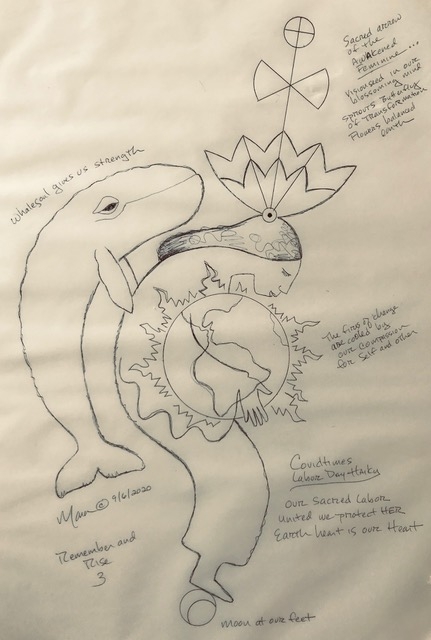 Sacred arrow
of the
AWAKened
Feminine...
Visionseed in our
blossoming mind
sprouts Butterfly
of Transformation
Flowers balanced
Earth
Whalesoul gives us strength
The fires of change
are cooled by
our compassion
for Self and other
Covidtimes
Labor Day Haiku
our Sacred Labor
United we protect HER
Earth heart is our Heart
© 9/6/2020
Remember and
Rise
3
Moon at our feet